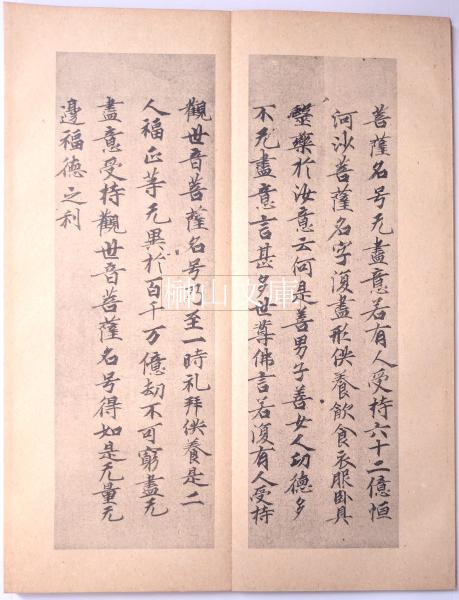 菩薩名号无盡意若有人受持六十二億恒
河沙菩薩名字復盡形供養飲食衣服卧具
醫藥於汝意云何是善男子善女人功德多
不无盡意言甚多世尊佛言若復有人受持
觀世音菩薩名号乃至一時礼拜供養是二
人福正等无異於百千万億劫不可窮盡无
盡意受持觀世音菩薩名号得如是无量无
邊福德之利
榊山文庫